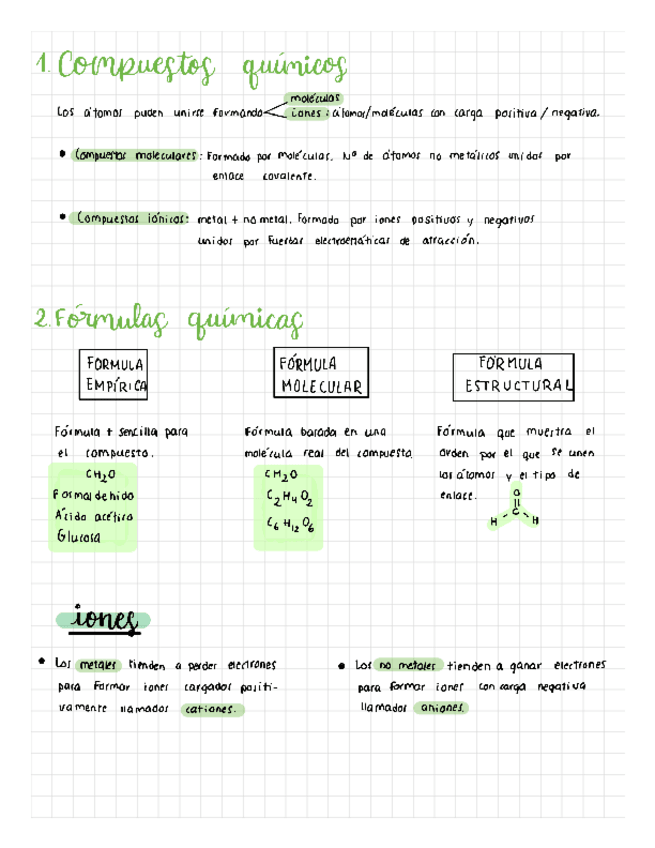 1. Compuestos químicos
moléculas
Los átomos puden unirse formando iones : átomos/moléculas con carga positiva / negativa.
• Compuestos moleculares : Formado por moléculas. Nº de átomos no metálicos unidos por
enlace covalente.
• Compuestos iónicos: metal + no metal. Formado por iones positivos y negativos
unidos por fuerzas electroemáticas de atracción.
2. Fórmulas químicas
FÓRMULA
EMPÍRICA
FÓRMULA
MOLECULAR
FÓRMULA
ESTRUCTURAL
Fórmula + sencilla para
el compuesto.
CH2O
Formaldehido
Ácido acético
Glucosa
Fórmula basada en una
molécula real del compuesto.
CH2O
C2H4O2
C6H12O6
Fórmula que muestra el
orden por el que se unen
los átomos y el tipo de
enlace.
O
C
H H
iones
• Los metales tienden a perder electrones
para formar iones cargados positi-
vamente llamados cationes.
• Los no metales tienden a ganar electrones
para formar iones con carga negativa
llamados aniones.